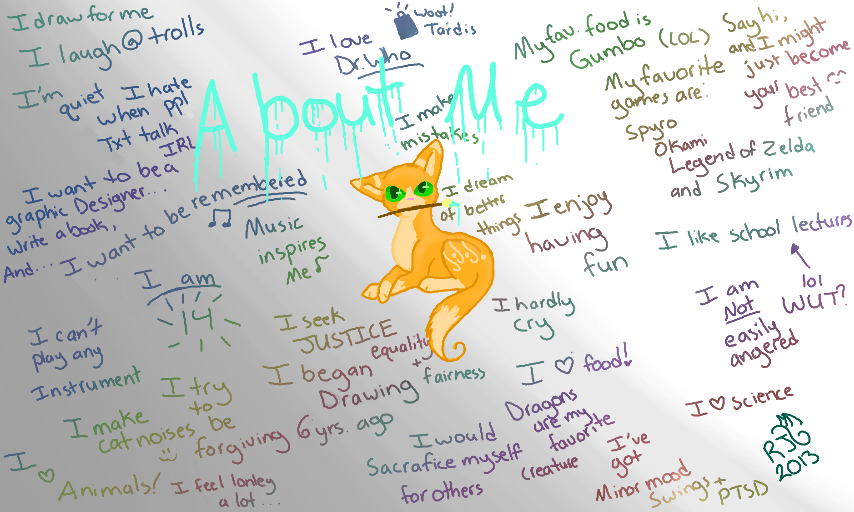 I draw for me
I laugh @ trolls
I'm quiet
IRL
I hate
when ppl
Txt talk
I love
Dr. Who
woot!
Tardis
My fav. food is
Gumbo (LOL)
Say hi,
and I might
just become
your best ^^
friend
My favorite
games are:
Spyro
Okami
Legend of Zelda
and Skyrim
About Me
I make
mistakes
I want to be a
graphic Designer...
write a book,
And... I want to be remembered
Music
inspires
Me
I dream
of better
things
I enjoy
having
fun
I like school lectures
lol
WUT?
I am
14
I seek
JUSTICE
equality
+
fairness
I hardly
cry
I am
Not
easily
angered
I can't
play any
Instrument
I began
Drawing
6 yrs. ago
I ♡ food!
I try
to
be
forgiving
I make
cat noises
I ♡ science
I would
Sacrafice myself
for others
Dragons
are my
favorite
creature
I've
got
Minor mood
Swings +
PTSD
I ♡ Animals!
I feel lonley
a lot...
RJG
2013